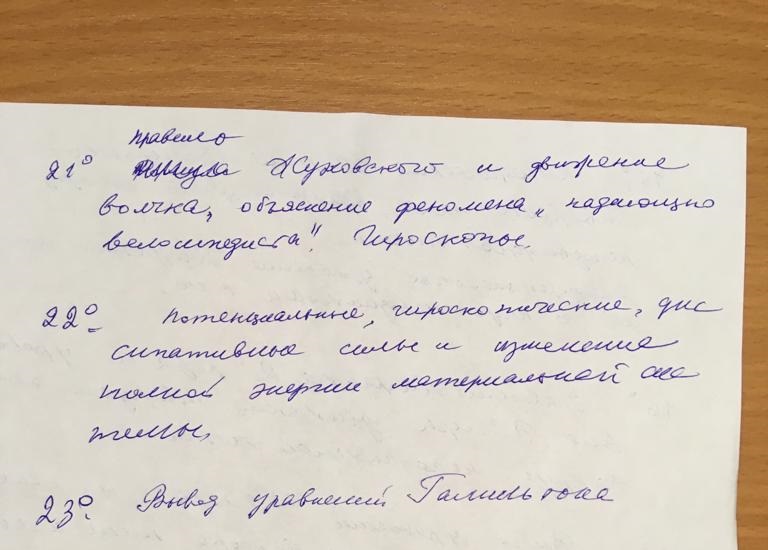 правило
21° Жуковского и движение
волчка, объяснение феномена „ падающего
велосипедиста". Гироскопы.
22° Потенциальные, гироскопические, дис
сипативные силы и изменение
полной энергии материальной сис
темы.
23° Вывод уравнений Гамильтона